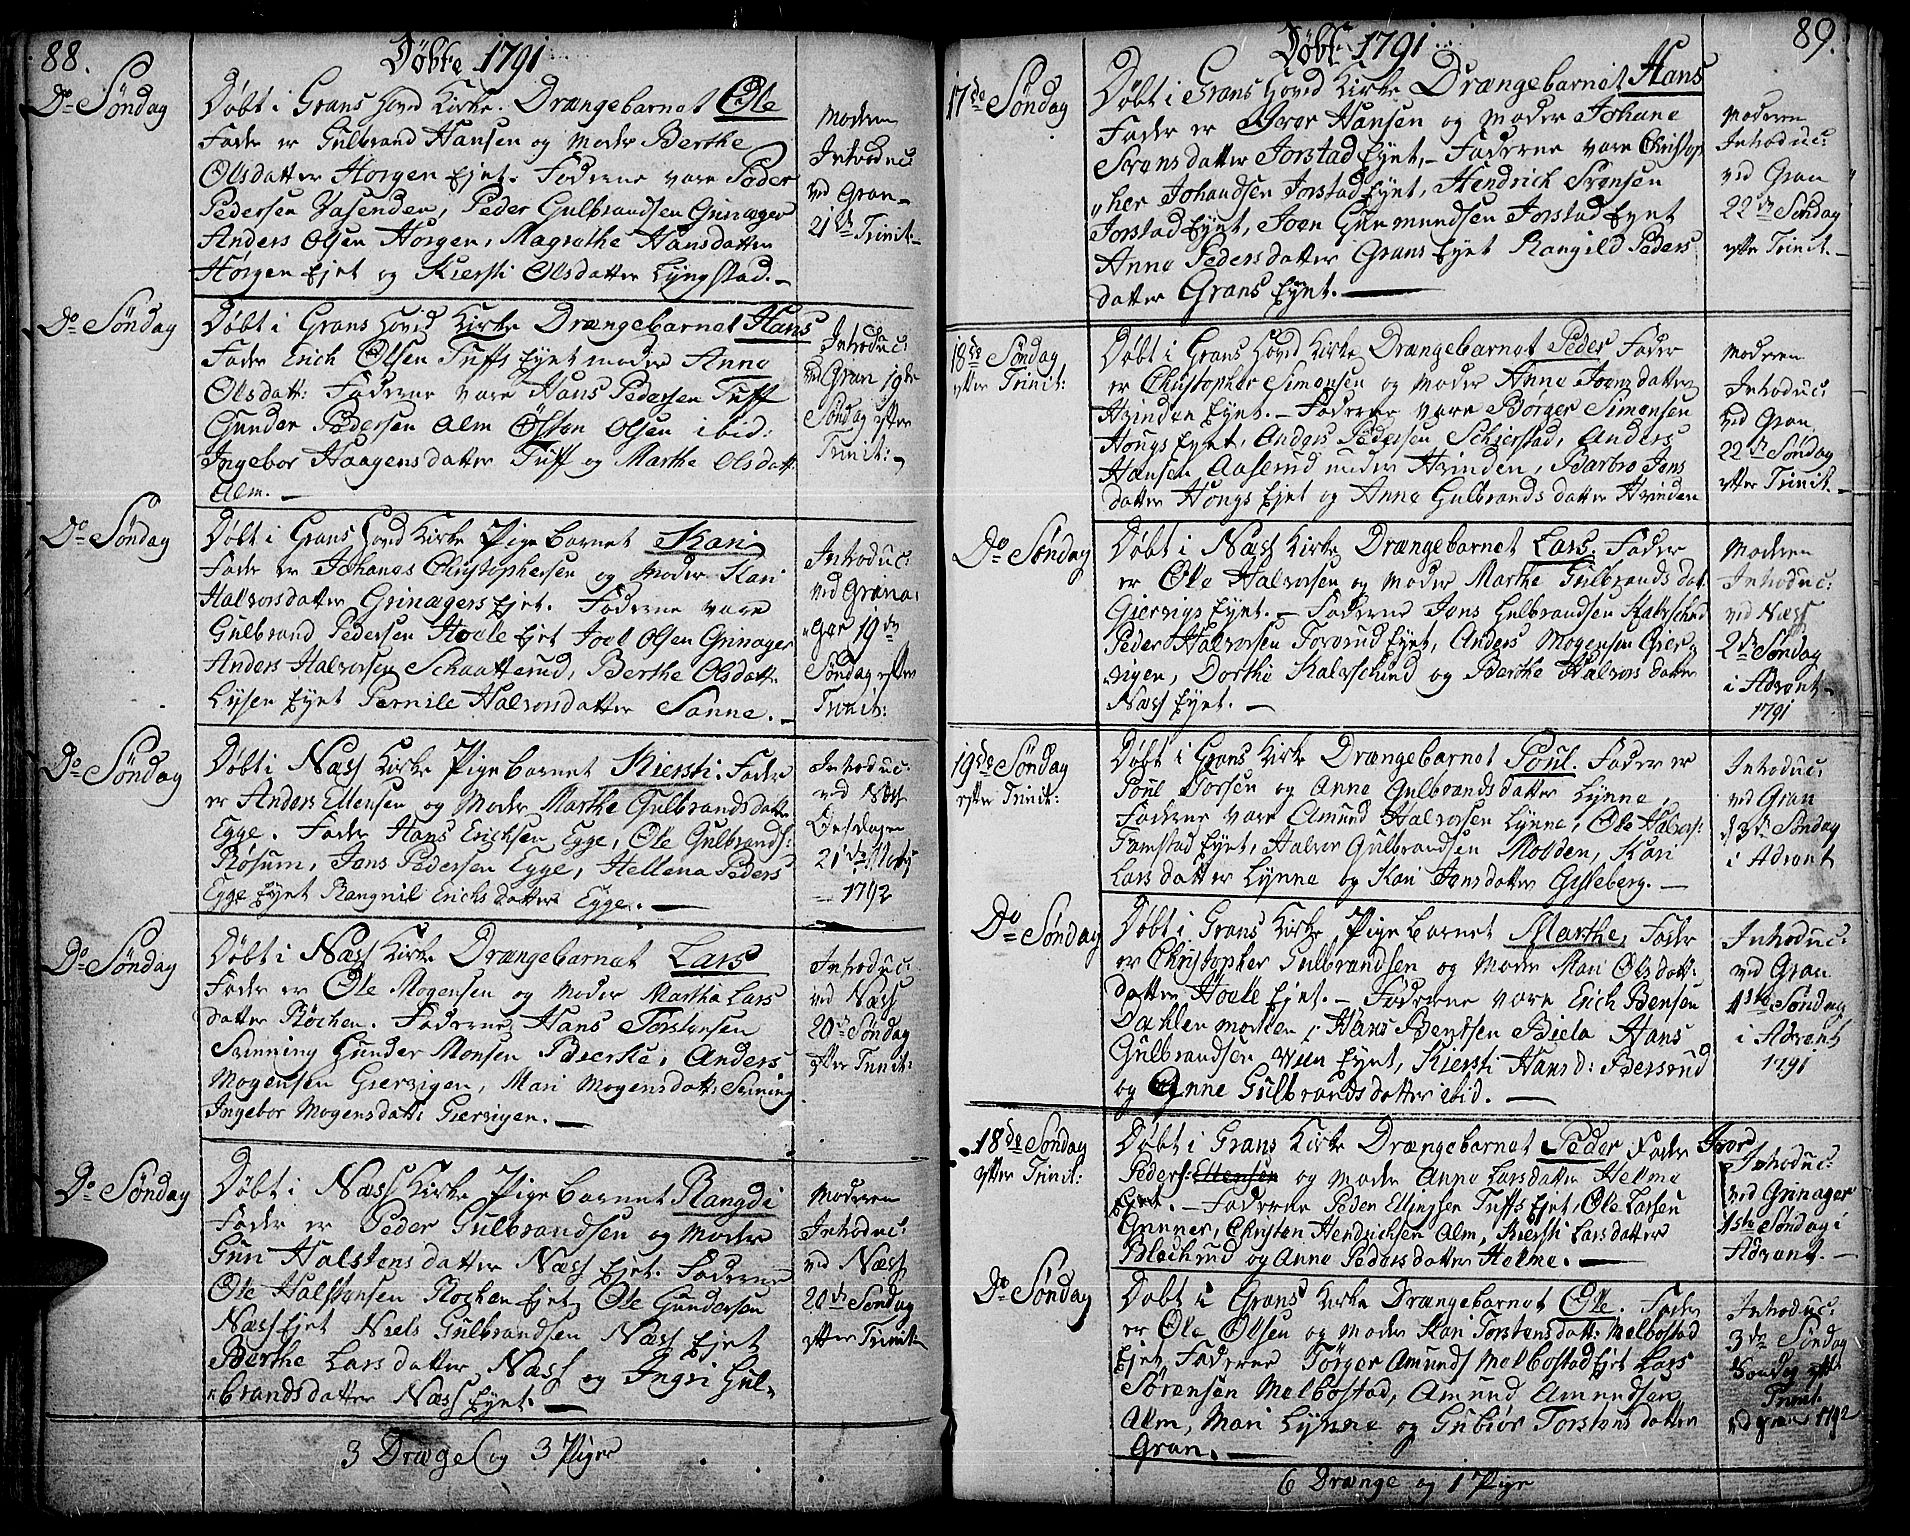 88.
Døbte 1791
Do Søndag
Døbt i Grans Hovd Kirke. Drængebarnet Ole
Fader er Gulbrand Hansen og moder Berthe
Olsdatter Horgen Ejet. Faderne vare Peder
Pedersen Pedersen, Peder Gulbrandsen Grinager
Anders Olsen Horgen, Magrethe Hansdatter
Hørgen Ejet og Kiersti Olsdatter Lyngstad.
Moderen
Introduc:
ved Gran
21de Trinit.
Do Søndag
Døbt i Grans Hovid Kirke Drængebarnet Hans
Fader Erich Olsen Tuffs Eynt moder Anne
Olsdatt: Faderne vare Hans Pedersen Tuff
Gunder Pedersen Alm Østen Olsen ibid:
Ingebor Haagensdatter Tuff og Marthe Olsdatt:
Alm.
Introduc:
ved Gran 19de
Søndag efter
Trinit:
Do Søndag
Døbt i Grans Hovd Kirke Pigebarnet Kari
Fader er Johanes Christophersen og moder Kari
Halvorsdatter Grinagers Ejet. Faderne vare
Gulbrand Pedersen Hvale Ejet Joel Olsen Grinager
Anders Halvorsen Schaatterud, Berthe Olsdatt:
Lysen Eynt Pernile Halvorsdatter Sanne.
Introduc:
ved Grina:
ger 19de
Søndag efter
Trinit:
Do Søndag
Døbt i Næss Kirke Pigebarnet Kiersti. Fader
er Anders Ellensen og Moder Marthe Gulbrandsdatter
Egge. Fader Hans Erichsen Egge, Ole Gulbrands:
Røsum, Jans Pedersen Egge, Hellena Peders
Egge Eynt Rangnil Erichsdatter Egge.
Introduc:
ved Næss
21de
1792
Do Søndag
Døbt i Næss Kirke Drængebarnet Lars
Fader er Ole Mogensen og moder Martha Lars
datter Røchen. Faderne Hans Torstensen
Svinning Gunder Monsen Bierke, Anders
Mogensen Giervigen, Mari Mogensdatt: Svinning
Ingebor Mogensdatt: Giervigen.
Introduc:
ved Næss
20de Søndag
efter Trinit:
Do Søndag
Døbt i Næss Kirke Pigebarnet Rangdi
Fader er Peder Gulbrandsen og Moder
Guri Halstensdatter Næss Ejet. Faderne
Ole Halstensen Rochen Ejet, Ole Gundersen
Næss Ejet Niels Gulbrandsen Næss Ejet
Berthe Larsdatter Næss og Ingri Gul
brandsdatter Næss Eynt.
Moderen
Introduc:
ved Næss
20de Søndag
efter Trinit
3 Dræge og 3 Piger
89.
Døbte 1791
17de Søndag
Døbt i Grans Hovid Kirke Drængebarnet Hans
Fader er Iver Hansen og moder Johane
Svensdatter Jorstad Eynt, Faderne vare Christop
her Johandsen Jorstad Eynt, Hendrich Svensen
Jorstad Eynt, Joen Gunmundsen Jorstad Eynt
Anne Pedersdatter Grans Eynt Rangild Peders
datter Grans Eynt.
Moderen
Introduc:
ved Gran
22de Søndag
efter Trinit.
18de Søndag
efter Trinit:
Døbt i Grans Hovd Kirke Drængebarnet Peder Fader
er Christopher Simonsen og moder Anne Joensdatter
Hvinden Eynt. Faderne vare Børger Simonsen
Hongs Eynt, Anders Pedersen Schierstad, Anders
Hansen Aaserud under Hvinden, Barbro Jens
datter Hongs Ejet og Anne Gulbrandsdatter Hvinden
Moderen
Introduc:
ved Gran
22de Søndag
efter Trinit.
Do Søndag
Døbt i Næss Kirke Drængebarnet Lars. Fader
er Ole Halvorsen og Moder Marthe Gulbrandsdat:
Giervigs Eynt. Faderne Jens Gulbrandsen Kalvschind
Peder Halvorsen Torverud Eynt, Anders Mogensen Gier
vigen, Dorthe Kalvschind og Berthe Halvorsdatter
Næss Eynt.
Moderen
Introduc:
ved Næss
2de Søndag
i Advent
1791
19de Søndag
efter Trinit:
Døbt i Grans Kirke Drængebarnet Poul. Fader er
Poul Torsen og Anne Gulbrandsdatter Lynne,
Faderne vare Amund Halvorsen Lynne, Ole Halvors:
Framstad Eynt, Halvor Gulbrandsen Molden, Kari
Larsdatter Lynne og Kari Jensdatter Gisleberg.
Introduc:
ved Gran
3de Søndag
i Advent
Do Søndag
Døbt i Grans Kirke Pigebarnet Marthe, Fader
er Christopher Gulbrandsen og Moder Mari Olsdatt:
datter Hvale Ejet. Faderne vare Erich Bensen
Dæhlen moelen, Hans Bentsen Biela Hans
Gulbrandsen Wien Eynt, Kiersti Hansd: Bersrud
og Anne Gulbrandsdatter ibid.
Introduc:
ved Gran
1ste Søndag
i Advent
1791
18de Søndag
efter Trinit:
Døbt i Grans Kirke Drængebarnet Peder Fader Iver
Peders: Ellensen og moder Anne Larsdatter Helme
Ejet. Faderne Peder Ellingsen Tuffs Ejet, Ole Larsen
Gunner, Christen Hendrichsen Alm, Kiersti Larsdatter
Blechrud og Anne Pedersdatter Helme.
Introduc:
ved Grinager
1ste Søndag i
Advent.
Do Søndag
Døbt i Grans Kirke Drængebarnet Ole. Fader
er Ole Olsen og moder Kari Torstensdatt: Melbostad
Ejet, Faderne Törger Amunds Melbostad Ejet Lars
Sørensen Melbostad, Amund Amundsen
Alm, Mari Lynne og Gubiør Torstensdatter
Gran.
Introduc:
3de Søndag
Søndag efter
Trinit.
ved Gran 1792
6 Drænge og 1 Pige